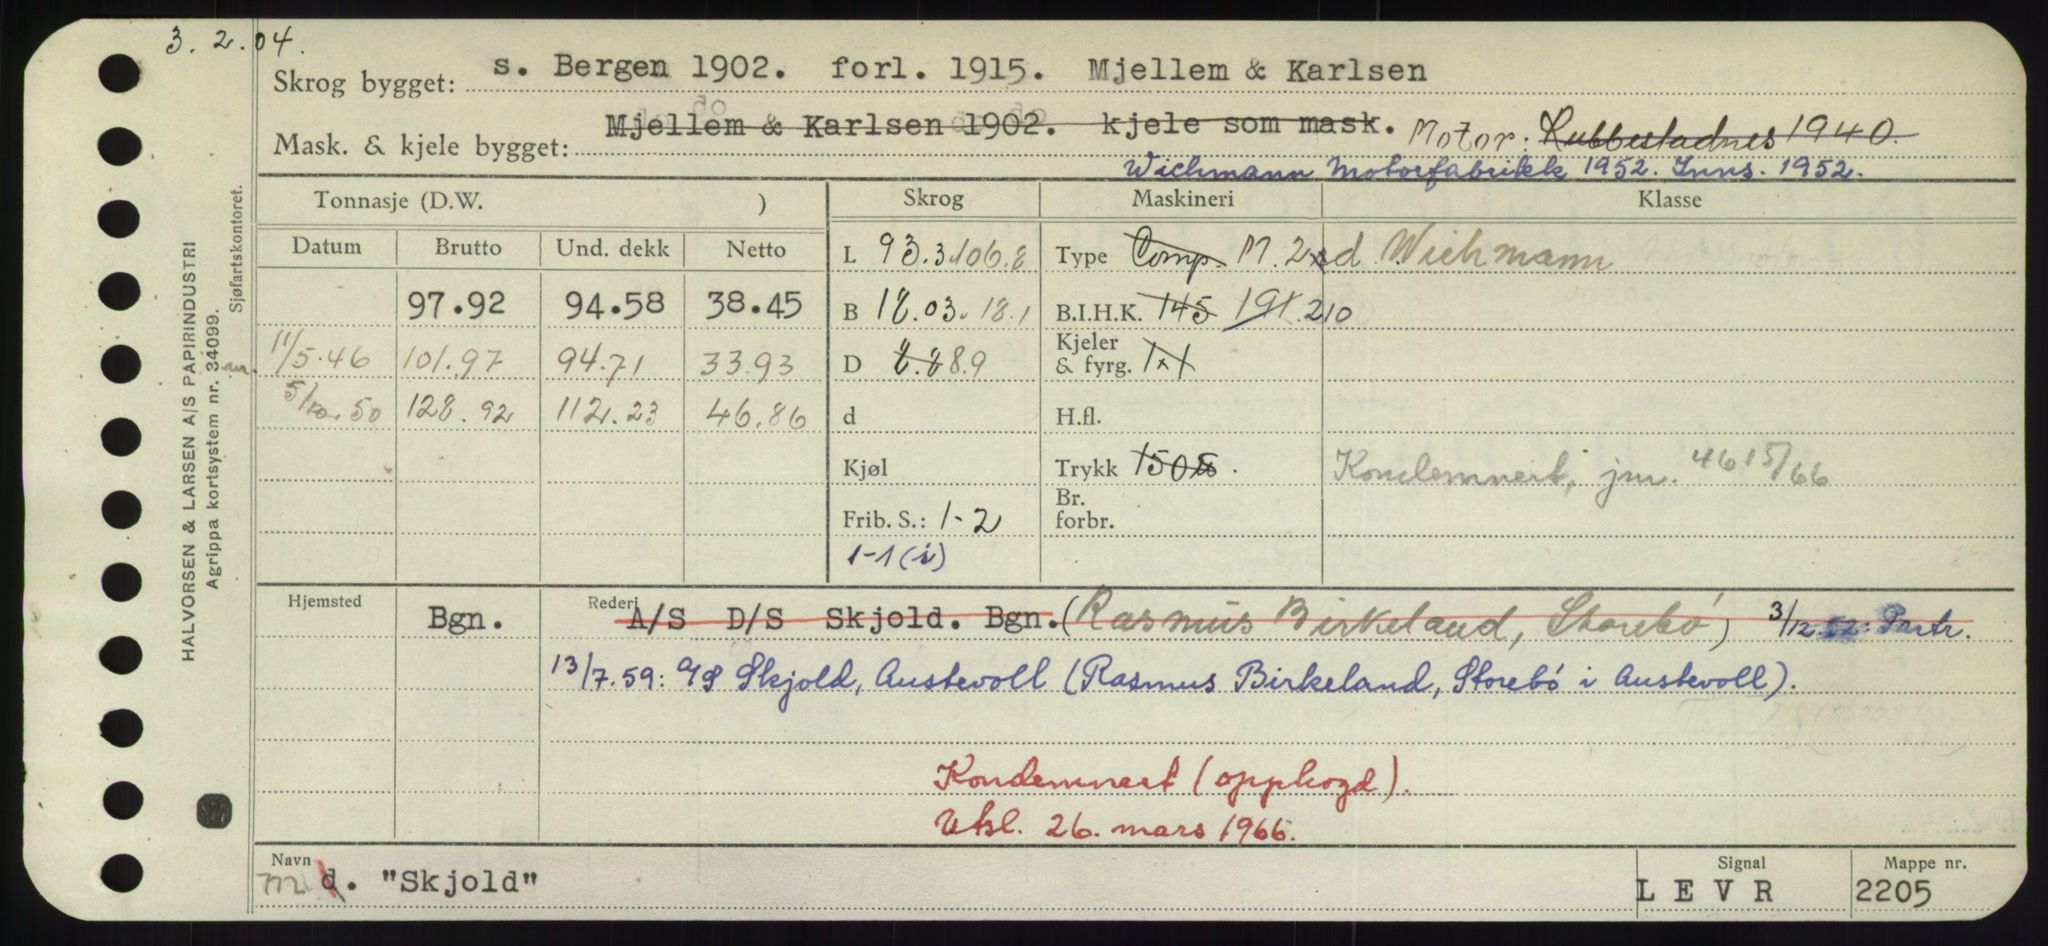 3. 2. 04.
Skrog bygget: s. Bergen 1902. forl. 1915. Mjellem & Karlsen
Mask. & kjele bygget: Mjellem & Karlsen 1902. kjele som mask. Motor: Rubbestadnes 1940.
Wichmann Motorfabrikk 1952. Inns. 1952.
Tonnasje (D.W. ) Skrog Maskineri Klasse
Datum Brutto Und. dekk Netto L 93.3 106.8 Type Comp. M. 2 s d Wichmann
97.92 94.58 38.45 B 18.03 18.1 B.I.H.K. 145 191 210
11/5.46 101.97 94.71 33.93 D 8.8 8.9 Kjeler & fyrg. 1x1
5/10.50 128.92 112.23 46.86 d H.fl.
Kjøl Trykk 150 Kondemnert, jnr. 4615/66
Frib. S.: 1-2 Br. forbr.
1-1 (i)
Hjemsted Bgn. Rederi A/S D/S Skjold. Bgn. (Rasmus Birkeland, Storebø) 3/12.52: Partr.
13/7.59: A/S Skjold, Austevoll (Rasmus Birkeland, Storebø i Austevoll).
Kondemnert (opphogd).
Utsl. 26. mars 1966.
Navn m d. "Skjold" Signal L E V R Mappe nr. 2205
HALVORSEN & LARSEN A/S PAPIRINDUSTRI
Agrippa kortsystem nr. 34099.
Sjøfartskontoret.